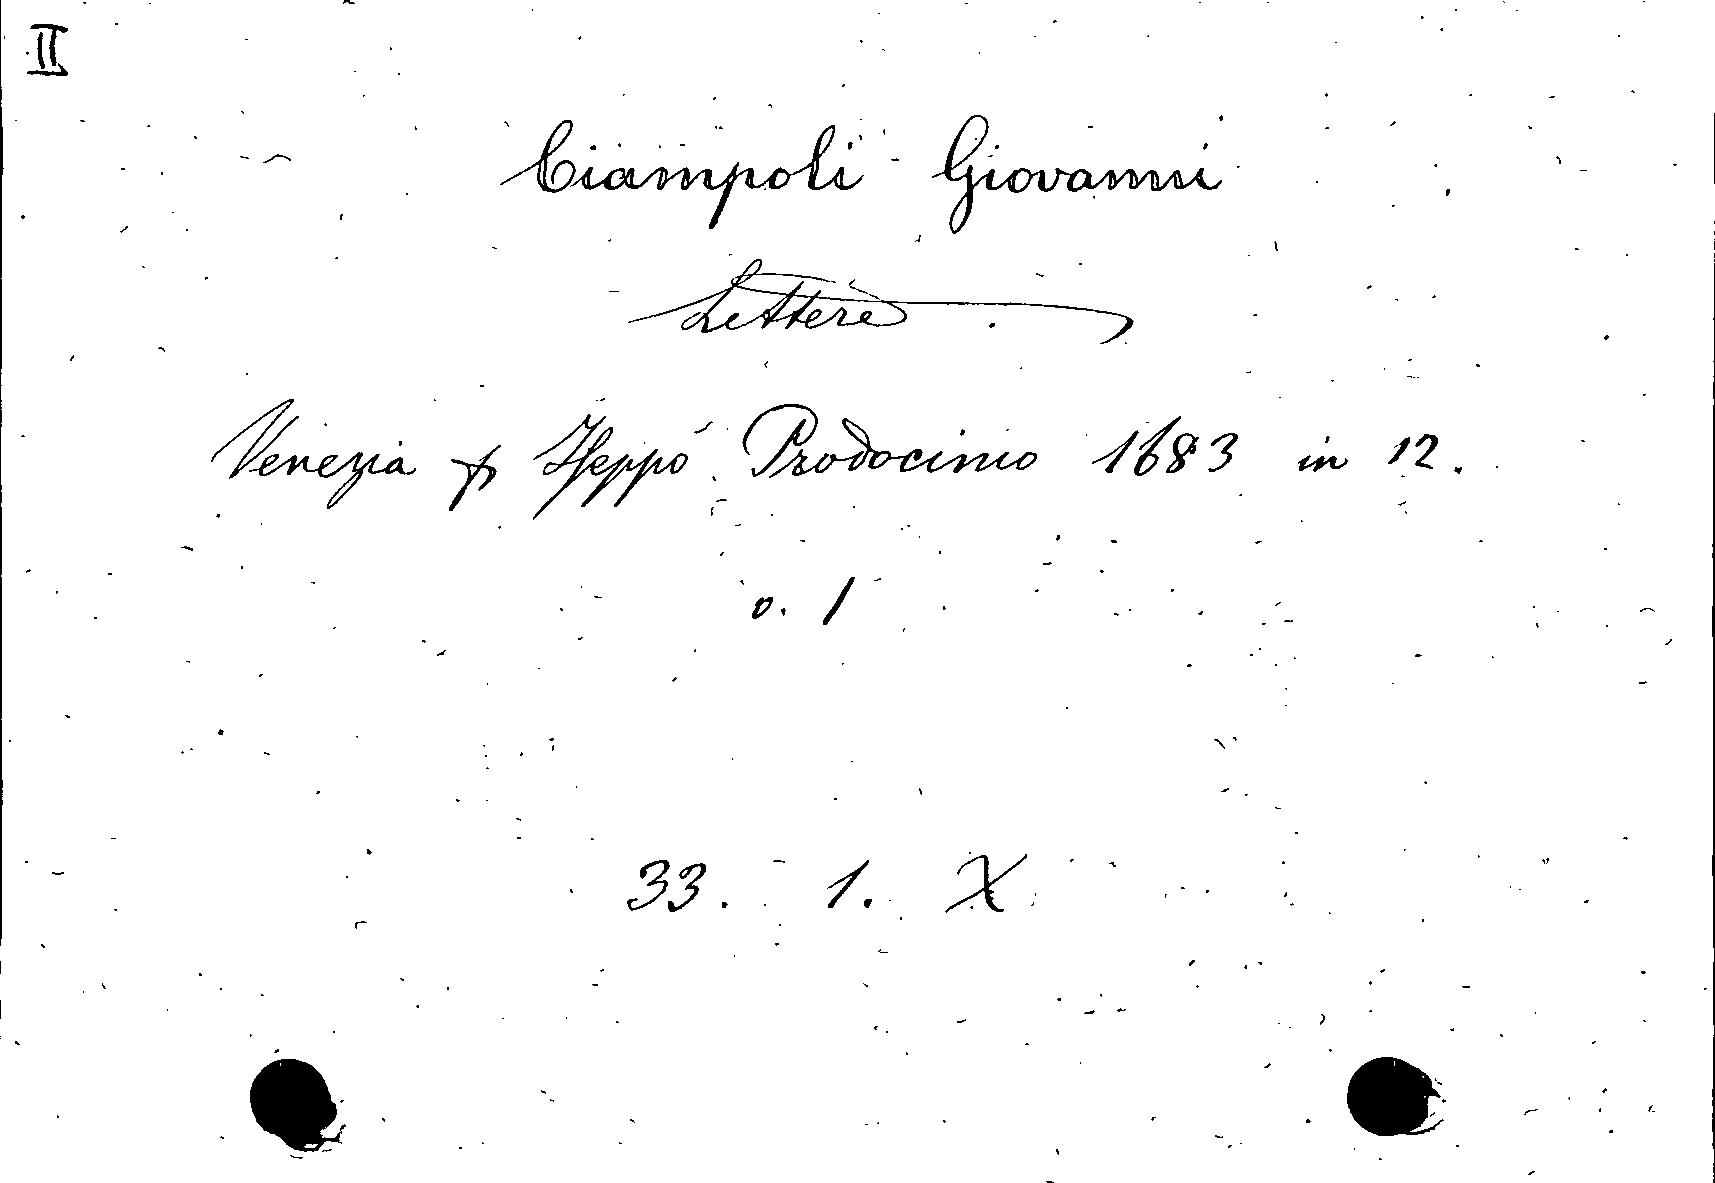 II
Ciampoli Giovanni
Lettere
Venezia p Prodocimo 1683 in 12.
v. 1
33. 1. X